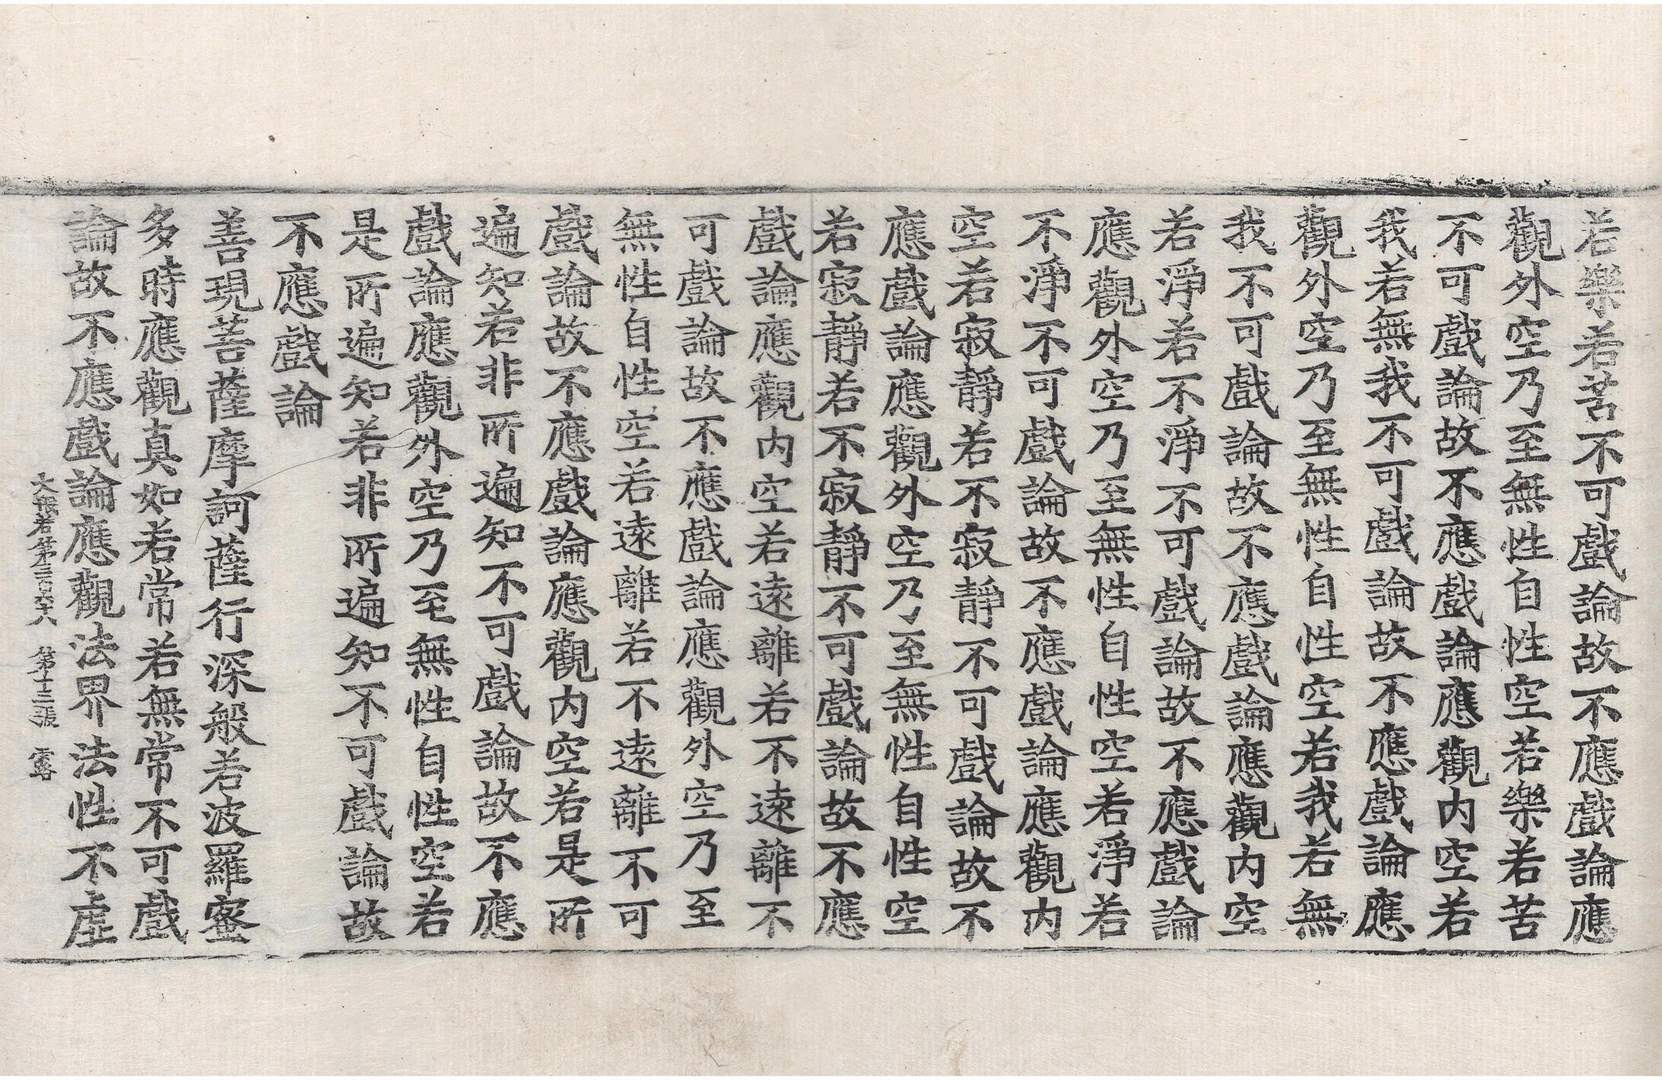 若樂若苦不可戲論故不應戲論應
觀外空乃至無性自性空若樂若苦
不可戲論故不應戲論應觀內空若
我若無我不可戲論故不應戲論應
觀外空乃至無性自性空若我若無
我不可戲論故不應戲論應觀內空
若淨若不淨不可戲論故不應戲論
應觀外空乃至無性自性空若淨若
不淨不可戲論故不應戲論應觀內
空若寂靜若不寂靜不可戲論故不
應戲論應觀外空乃至無性自性空
若寂靜若不寂靜不可戲論故不應
戲論應觀內空若遠離若不遠離不
可戲論故不應戲論應觀外空乃至
無性自性空若遠離若不遠離不可
戲論故不應戲論應觀內空若是所
遍知若非所遍知不可戲論故不應
戲論應觀外空乃至無性自性空若
是所遍知若非所遍知不可戲論故
不應戲論
善現菩薩摩訶薩行深般若波羅蜜
多時應觀真如若常若無常不可戲
論故不應戲論應觀法界法性不虛
大般若第三百六十六 第十三張